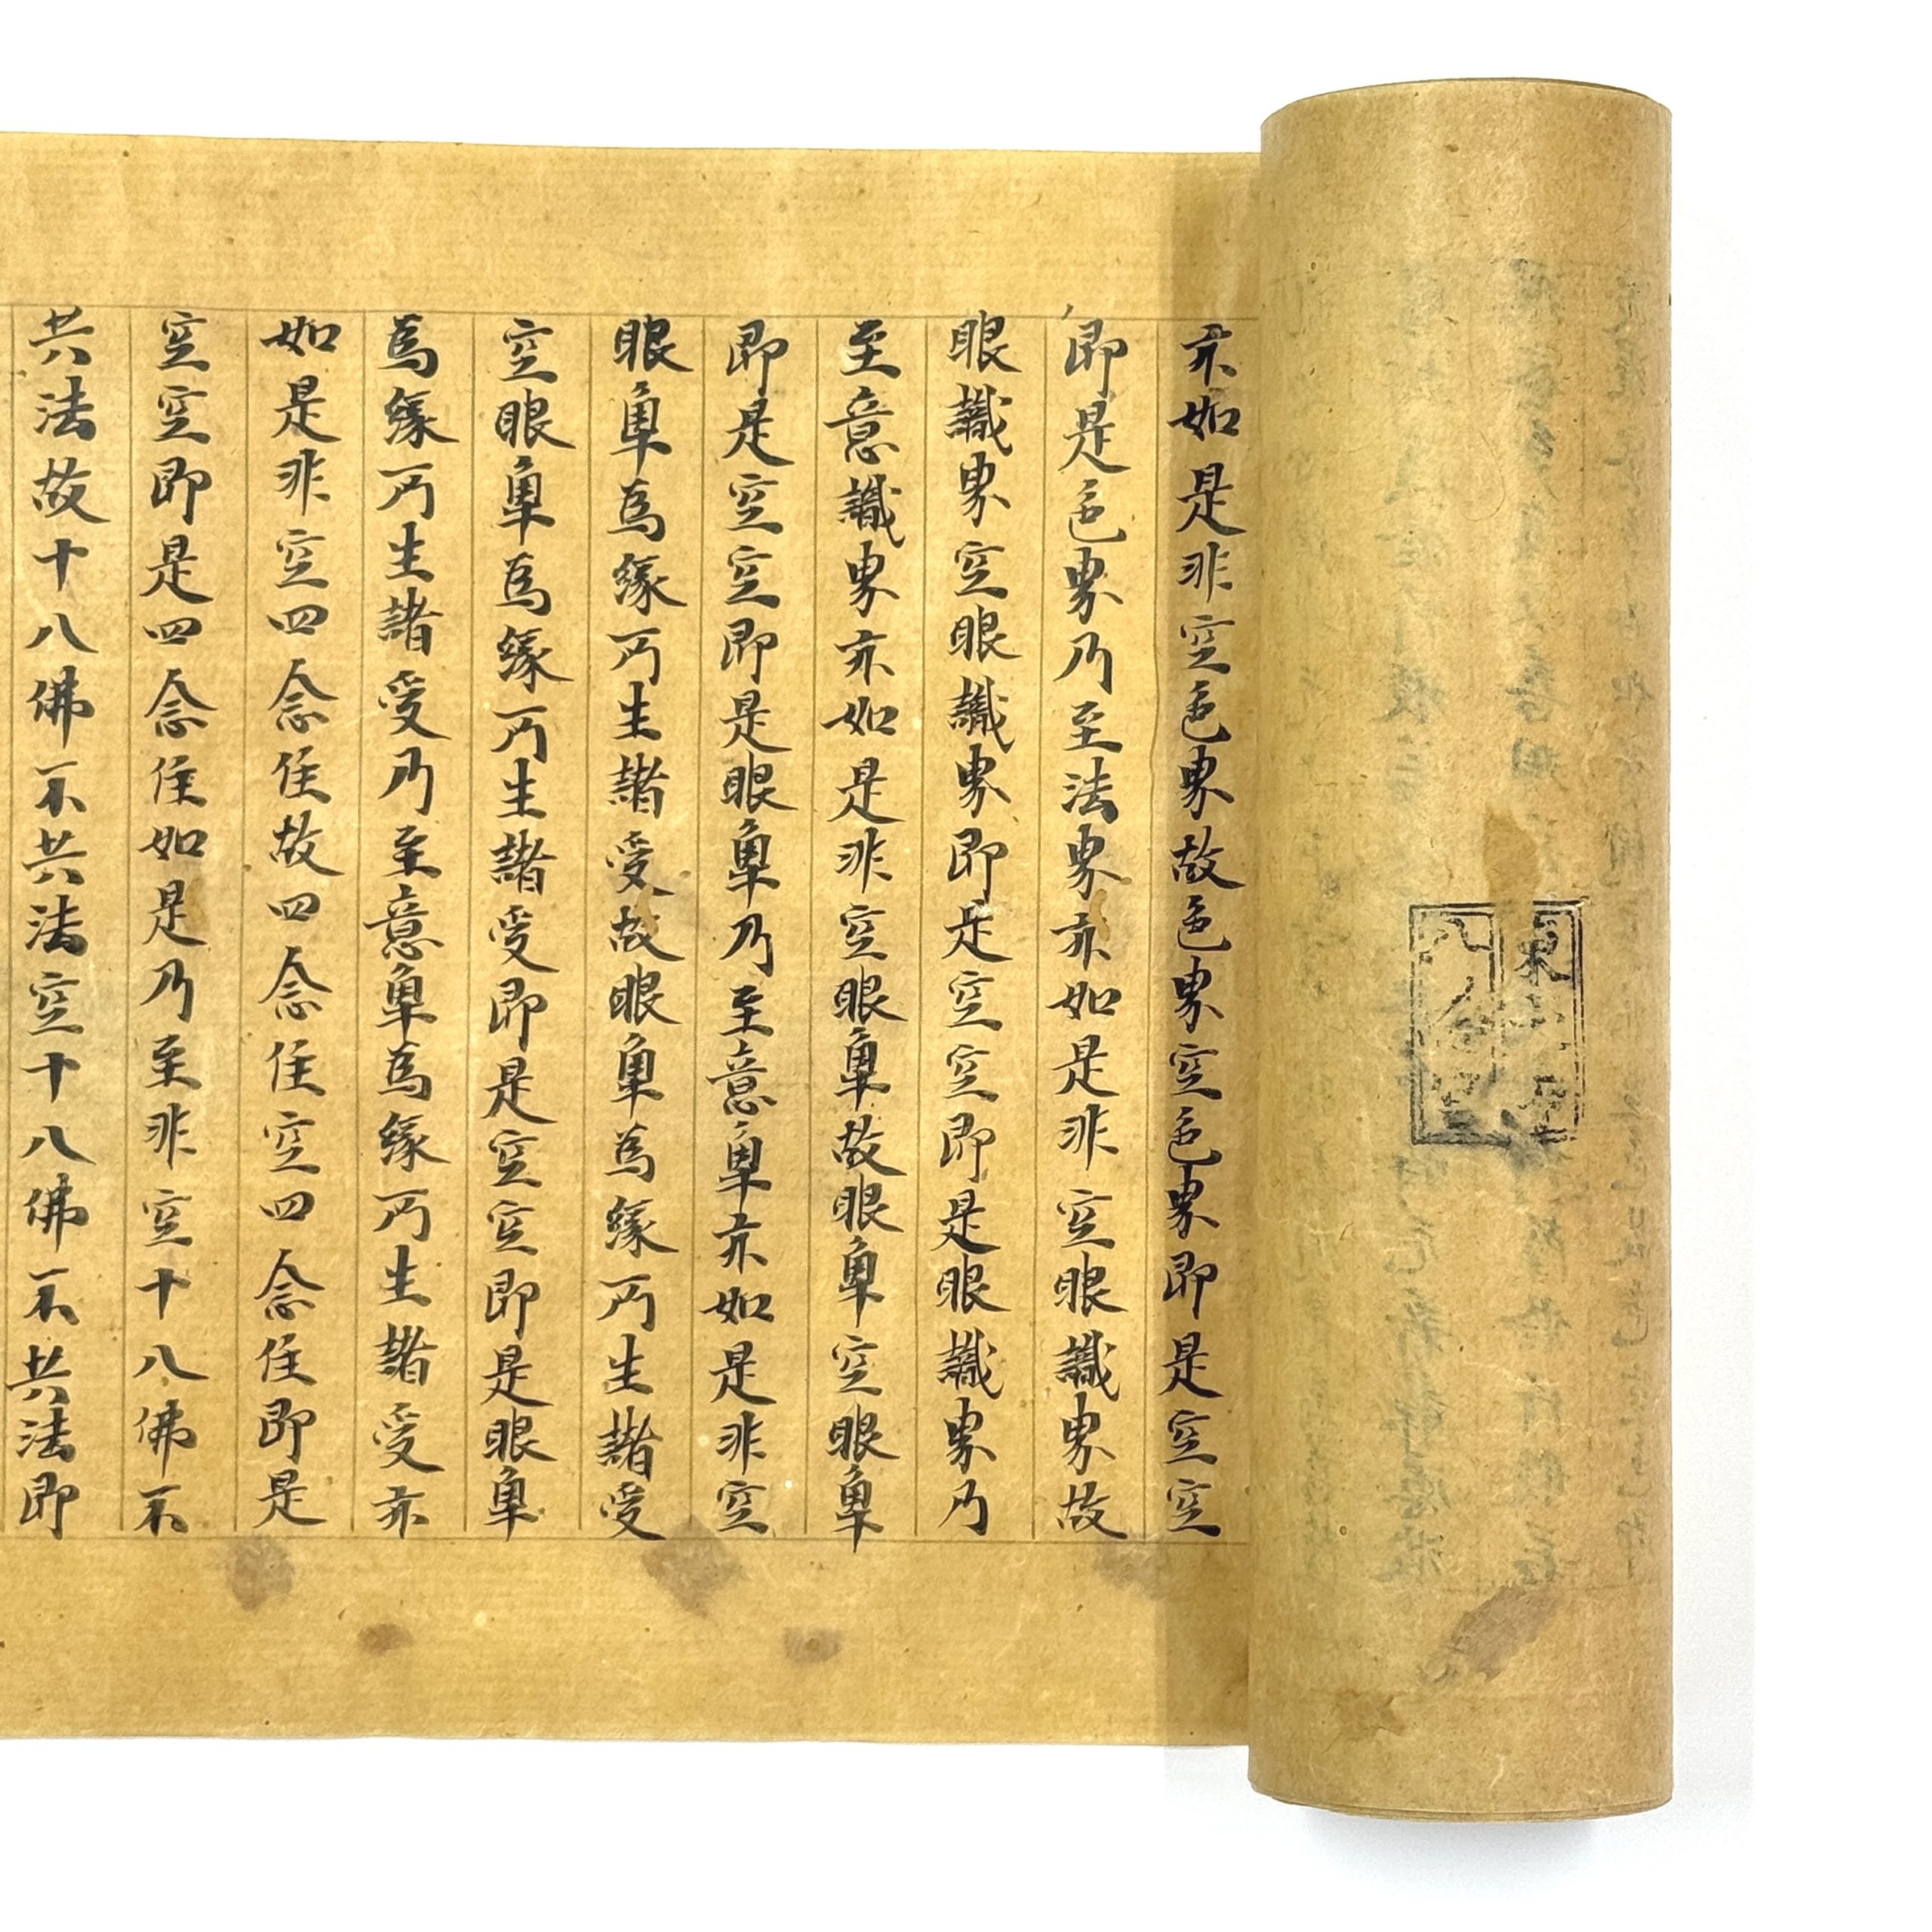 亦如是非空色界故色界空色界即是空空
即是色界乃至法界亦如是非空眼識界故
眼識界空眼識界即是空空即是眼識界乃
至意識界亦如是非空眼觸故眼觸空眼觸
即是空空即是眼觸乃至意觸亦如是非空
眼觸為緣所生諸受故眼觸為緣所生諸受
空眼觸為緣所生諸受即是空空即是眼觸
為緣所生諸受乃至意觸為緣所生諸受亦
如是非空四念住故四念住空四念住即是
空空即是四念住如是乃至非空十八佛不
共法故十八佛不共法空十八佛不共法即